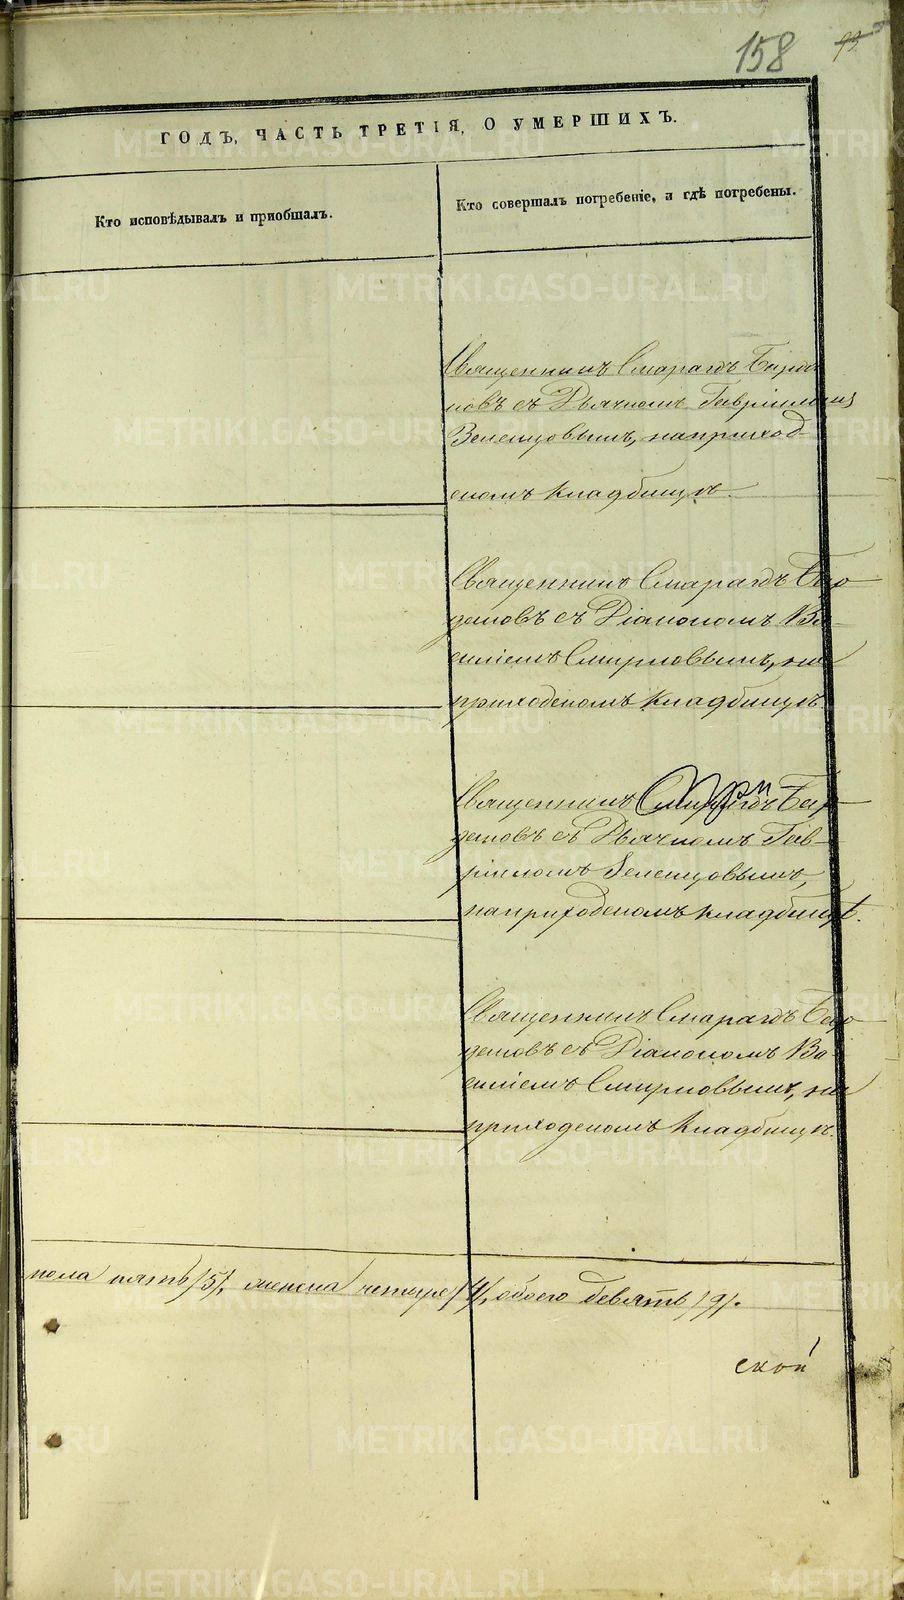 158
93.
ГОДЪ, ЧАСТЬ ТРЕТІЯ, О УМЕРШИХЪ.
Кто исповѣдывалъ и пріобщалъ.
Кто совершалъ погребеніе, и гдѣ погребены.
Священникъ Смарагдъ
новъ съ Дьячкомъ Гавріиломъ
Зеленцовымъ, на приход-
скомъ кладбищѣ.
Священникъ Смарагдъ
демовъ съ Діакономъ Ва-
силіемъ Смирновымъ, на
приходскомъ кладбищѣ.
Священникъ Смарагдъ
демовъ съ Дьячкомъ Гав-
ріиломъ Зеленцовымъ,
на приходскомъ кладбищѣ.
Священникъ Смарагдъ
демовъ съ Діакономъ Ва-
силіемъ Смирновымъ, на
приходскомъ кладбищѣ.
пола пять /5/, женска четыре /4/, обоего девять /9/.
ской
METRIKI.GASO-URAL.RU